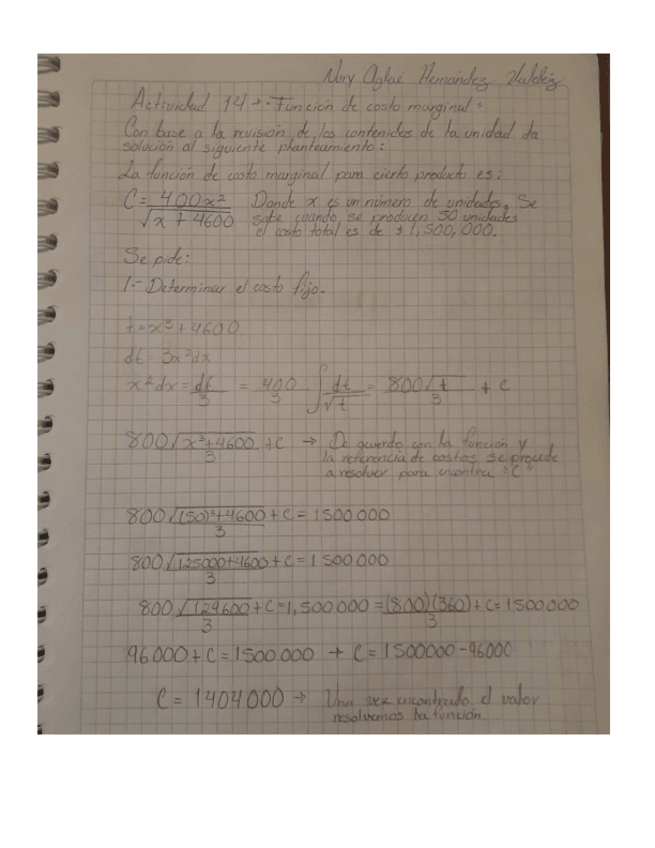 Nury Aglaé Hernández Valdéz
Actividad 14 → Función de costo marginal.
Con base a la revisión de los contenidos de la unidad da
solución al siguiente planteamiento:
La función de costo marginal para cierto producto es:
C = 400x² / √x + 4600 Donde x es un número de unidades. Se
sabe cuando se producen 50 unidades
el costo total es de $1,500,000.
Se pide:
1.- Determinar el costo fijo.
t = x³ + 4600
dt = 3x²dx
x²dx = dt/3 = 400/3 ∫ dt/√t = 800√t/3 + C
800√x³+4600/3 + C → De acuerdo con la función y
la referencia de costos se procede
a resolver para encontra "C"
800√(50)³+4600/3 + C = 1500000
800√125000+4600/3 + C = 1500000
800√129600/3 + C = 1,500000 = (800)(360)/3 + C = 1500000
96000 + C = 1500.000 → C = 1500000 - 96000
C = 1404000 → Una vez encontrado el valor
resolvemos la función